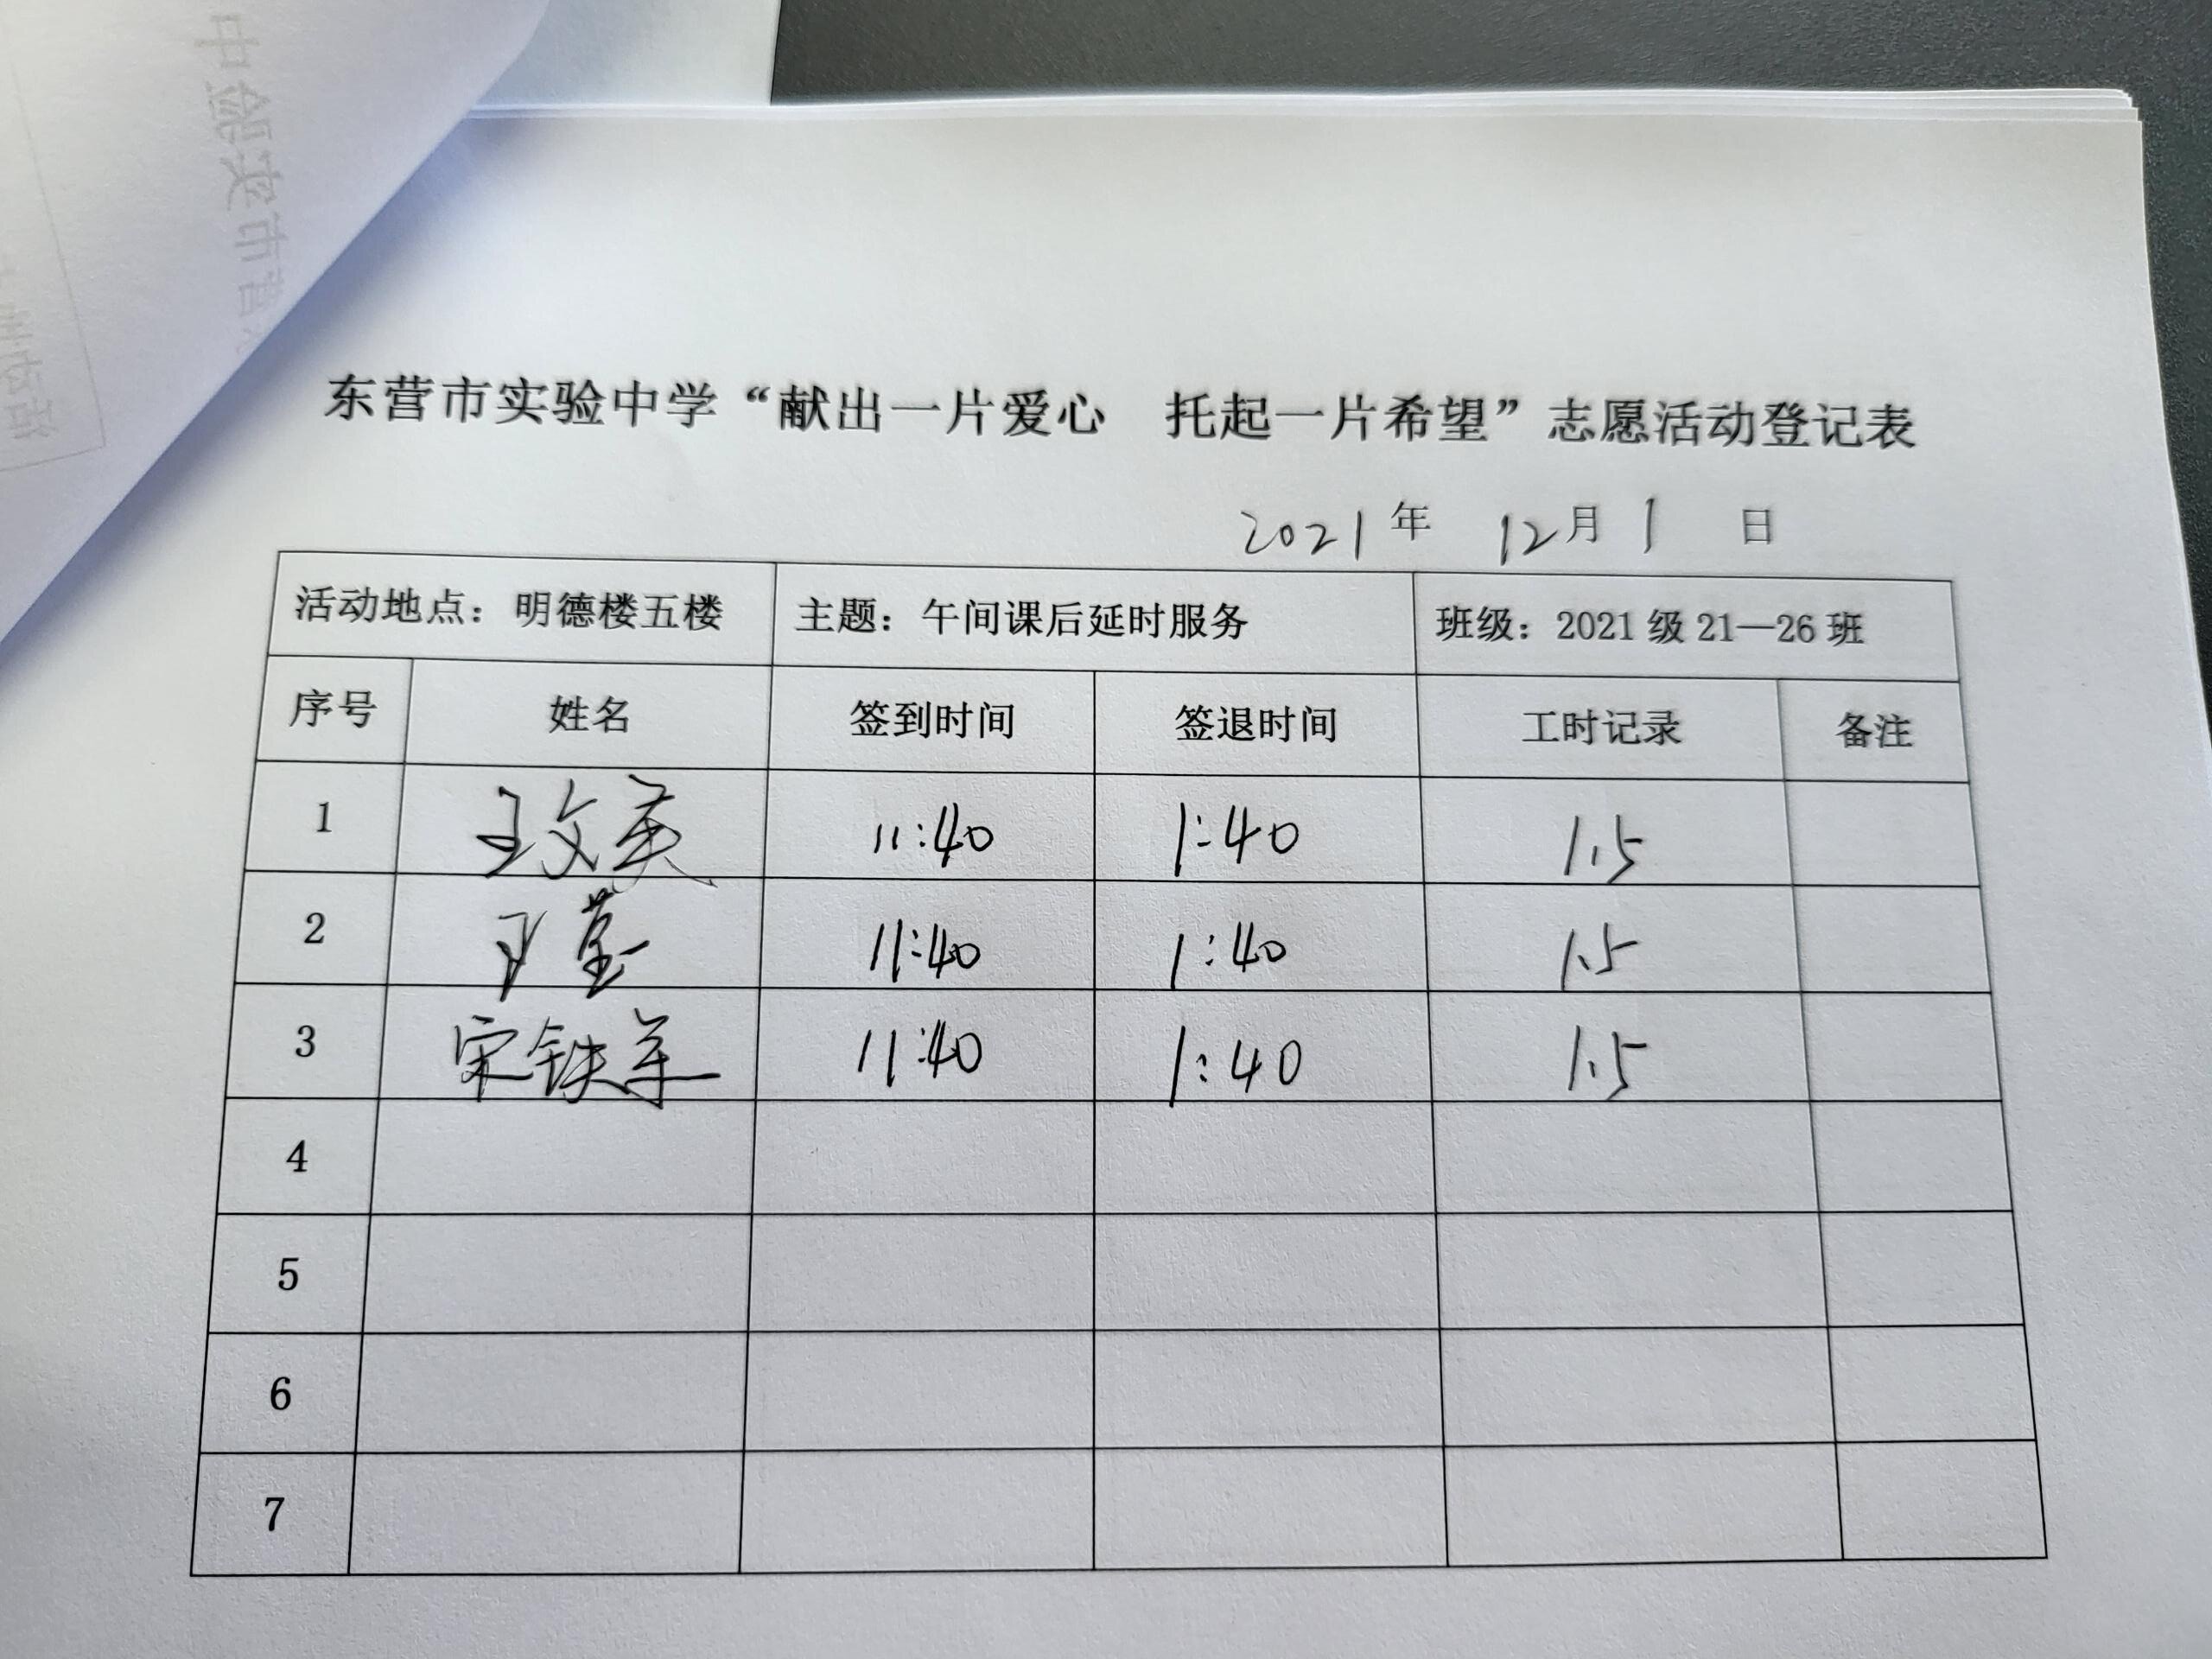 东营市实验中学“献出一片爱心 托起一片希望”志愿活动登记表
2021年 12月1 日
活动地点：明德楼五楼 主题：午间课后延时服务 班级：2021级21—26班
序号 姓名 签到时间 签退时间 工时记录 备注
1 王文英 11:40 1:40 1.5
2 王莹 11:40 1:40 1.5
3 宋铁军 11:40 1:40 1.5
4
5
6
7